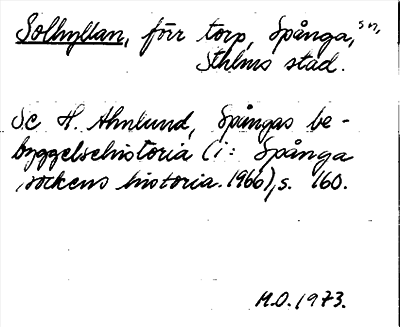 Solhyllan, förr torp, Spånga, sn,
Sthlms stad.
Se H. Ahnlund, Spångas be-
byggelsehistoria (i: Spånga
sockens historia. 1966), s. 160.
M.O. 1973.